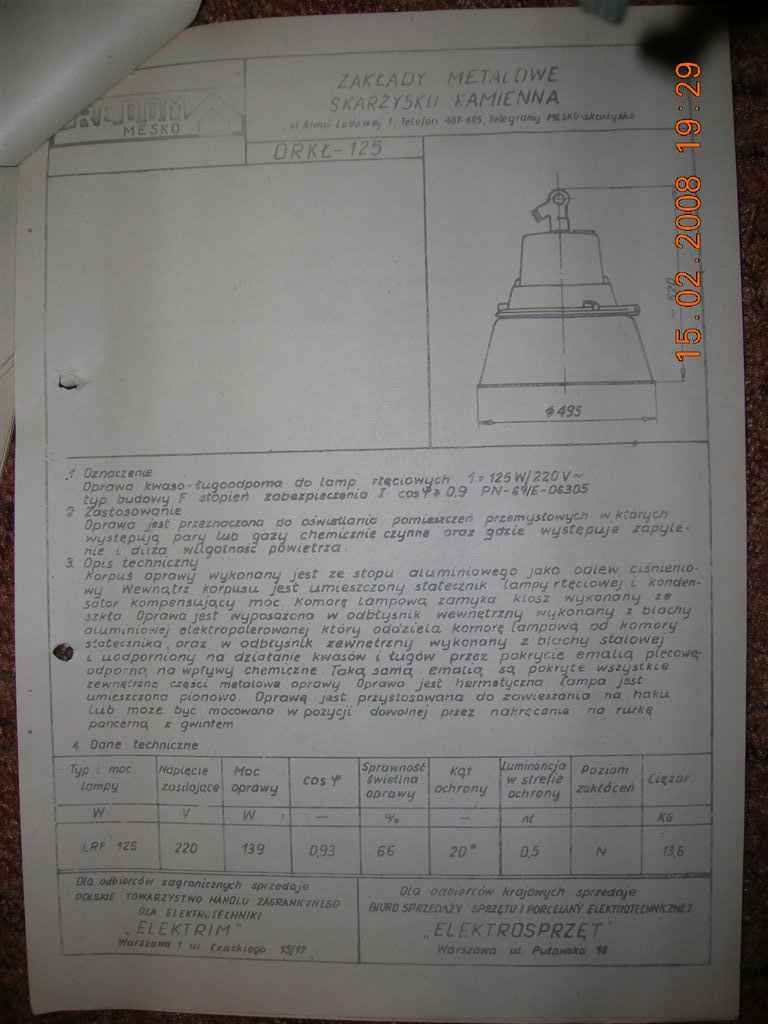 MESKO
ZAKŁADY METALOWE
SKARŻYSKO KAMIENNA
Telefon 481-485, Telegramy MESKO-skarżysko
ORKŁ-125
15.02.2008 19:29
ϕ 495
1 Oznaczenie
Oprawa kwaso-ługoodporna do lamp rtęciowych 1=125W/220V~
typ budowy F stopień zabezpieczenia I cos φ ≥ 0,9 PN-69/E-06305
2 Zastosowanie
Oprawa jest przeznaczona do oświetlania pomieszczeń przemysłowych w których
występują pary lub gazy chemicznie czynne oraz gdzie występuje zapyle-
nie i duża wilgotność powietrza.
3. Opis techniczny
Korpus oprawy wykonany jest ze stopu aluminiowego jako odlew ciśnienio-
wy Wewnątrz korpusu jest umieszczony statecznik lampy rtęciowej i konden-
sator kompensujący moc. Komorę lampową zamyka klosz wykonany ze
szkła. Oprawa jest wyposażona w odbłyśnik wewnętrzny wykonany z blachy
aluminiowej elektropolerowanej który oddziela komorę lampową od komory
statecznika, oraz w odbłyśnik zewnętrzny wykonany z blachy stalowej
i uodporniony na działanie kwasów i ługów przez pokrycie emalią piecową
odporną na wpływy chemiczne. Taką samą emalią są pokryte wszystkie
zewnętrzne części metalowe oprawy Oprawa jest hermetyczna lampa jest
umieszczona pionowo. Oprawa jest przystosowana do zawieszania na haku
lub może być mocowana w pozycji dowolnej przez nakręcanie na rurkę
pancerną z gwintem
4. Dane techniczne
Typ i moc lampy Napięcie zasilające Moc oprawy cos φ Sprawność świetlna oprawy Kąt ochrony Luminancja w strefie ochrony Poziom zakłóceń Ciężar
W V W — % — nt KG
LRF 125 220 139 0,93 66 20° 0,5 N 13,6
Dla odbiorców zagranicznych sprzedaje
POLSKIE TOWARZYSTWO HANDLU ZAGRANICZNEGO
DLA ELEKTROTECHNIKI
"ELEKTRIM"
Warszawa 1 ul. Czackiego 15/17
Dla odbiorców krajowych sprzedaje
BIURO SPRZEDAŻY SPRZĘTU I PORCELANY ELEKTROTECHNICZNEJ
"ELEKTROSPRZĘT"
Warszawa ul. Puławska 18